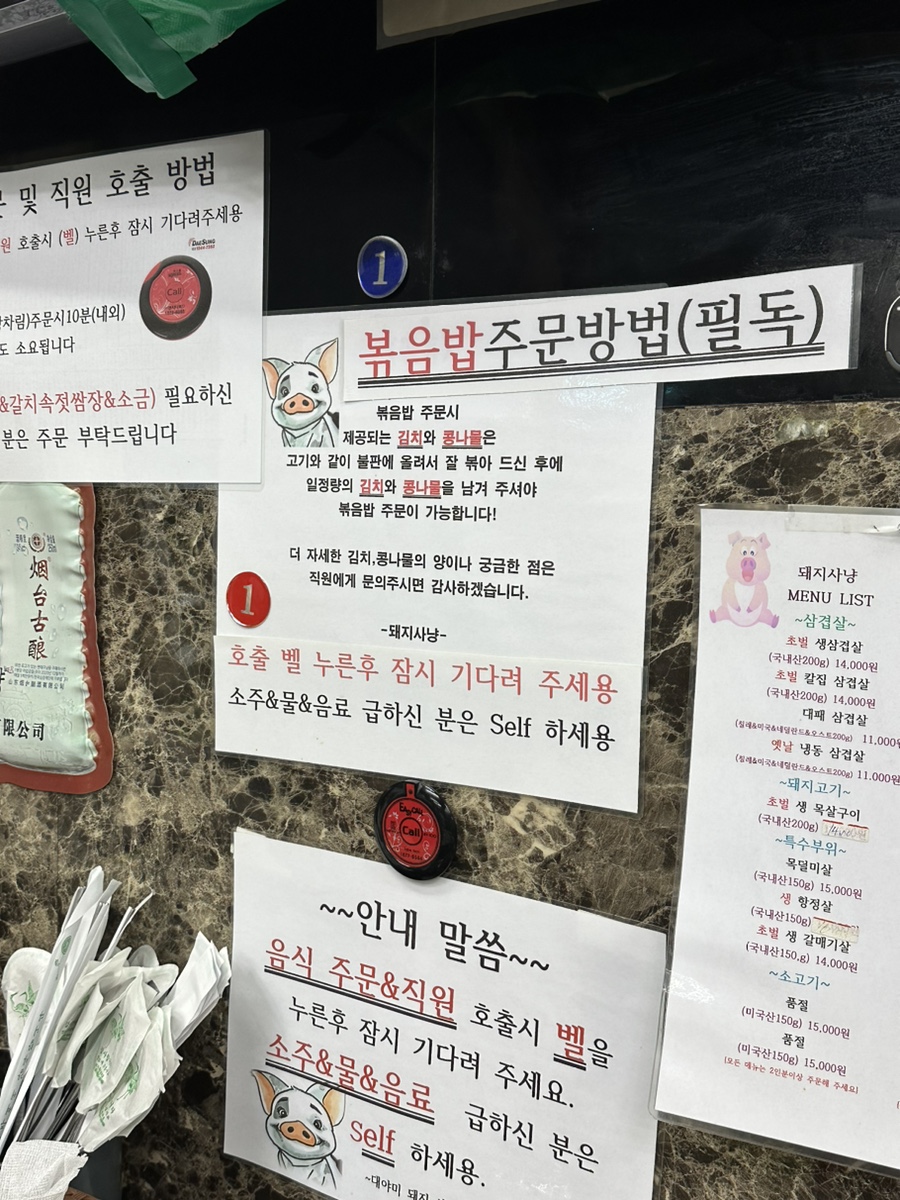 및 직원 호출 방법
원 호출시 (벨) 누른후 잠시 기다려주세용
DAESUNG
Call
차림)주문시10분(내외)
도 소요됩니다
&갈치속젓쌈장&소금) 필요하신
분은 주문 부탁드립니다
1
볶음밥주문방법(필독)
볶음밥 주문시
제공되는 김치와 콩나물은
고기와 같이 불판에 올려서 잘 볶아 드신 후에
일정량의 김치와 콩나물을 남겨 주셔야
볶음밥 주문이 가능합니다!
더 자세한 김치,콩나물의 양이나 궁금한 점은
직원에게 문의주시면 감사하겠습니다.
1
-돼지사냥-
호출 벨 누른후 잠시 기다려 주세용
소주&물&음료 급하신 분은 Self 하세용
Call
~~안내 말씀~~
음식 주문&직원 호출시 벨을
누른후 잠시 기다려 주세요.
소주&물&음료 급하신 분은
Self 하세용.
~대야미 돼지
烟台古酿
限公司
돼지사냥
MENU LIST
~삼겹살~
초벌 생삼겹살
(국내산200g) 14,000원
초벌 칼집 삼겹살
(국내산200g) 14,000원
대패 삼겹살
(칠레&미국&네덜란드&오스트200g) 11,000원
옛날 냉동 삼겹살
(칠레&미국&네덜란드&오스트200g) 11,000원
~돼지고기~
초벌 생 목살구이
(국내산200g)
~특수부위~
목덜미살
(국내산150g) 15,000원
생 항정살
(국내산150g)
초벌 생 갈매기살
(국내산150,g) 14,000원
~소고기~
품절
(미국산150g) 15,000원
품절
(미국산150g) 15,000원
(모든 메뉴는 2인분이상 주문해 주세요)